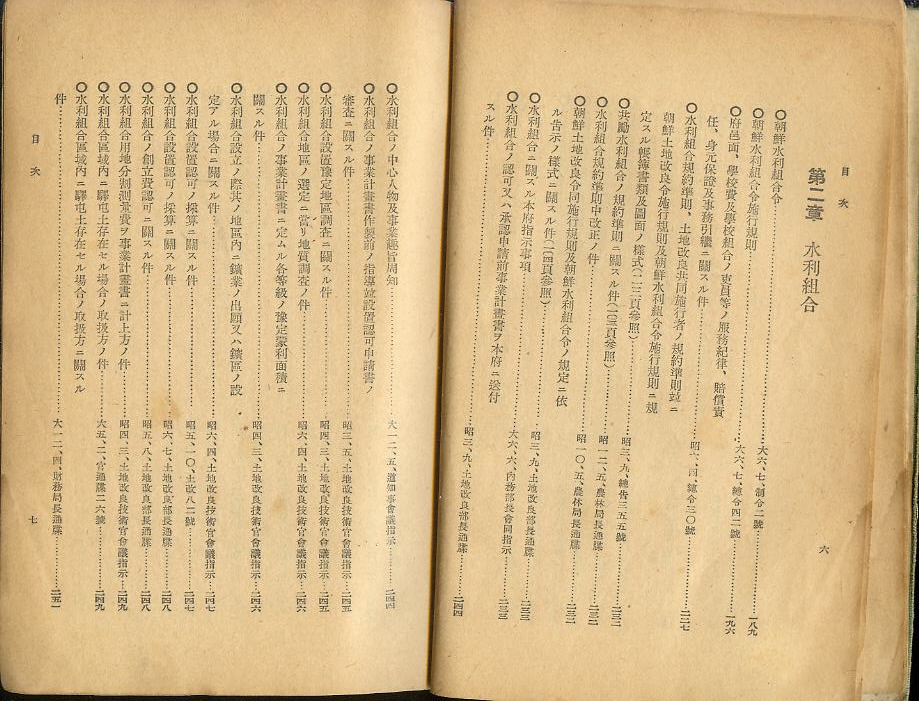 目次
六
第二章 水利組合
○朝鮮水利組合令……大六、七、制令二號……一八九
○朝鮮水利組合令施行規則……大六、七、總令四二號……一九六
○府邑面、學校費及學校組合ノ吏員等ノ服務紀律、賠償責
任、身元保證及事務引繼ニ關スル件……昭六、四、總令三〇號……二二七
○水利組合規約準則、土地改良共同施行者ノ規約準則竝ニ
朝鮮土地改良令施行規則及朝鮮水利組合令施行規則ニ規
定スル帳簿書類及圖面ノ樣式(一二二頁參照)……昭三、九、總告三五五號……二三二
○共勵水利組合ノ規約準則ニ關スル件(一〇三頁參照)……昭一二、五、農林局長通牒……二三二
○水利組合規約準則中改正ノ件……昭一〇、五、農林局長通牒……二三二
○朝鮮土地改良令同施行規則及朝鮮水利組合令ノ規定ニ依
ル告示ノ樣式ニ關スル件(一一四頁參照)……昭三、九、土地改良部長通牒……二三三
○水利組合ニ關スル本府指示事項……大六、六、內務部長會同指示……二三三
○水利組合ノ認可又ハ承認申請前事業計畫書ヲ本府ニ送付
スル件……昭三、九、土地改良部長通牒……二四四
○水利組合ノ中心人物及事業趣旨周知……大一二、五、道知事會議指示……二四四
○水利組合ノ事業計畫書作製前ノ指導竝設置認可申請書ノ
審査ニ關スル件……昭三、五、土地改良技術官會議指示……二四五
○水利組合設置豫定地區調査ニ關スル件……昭四、三、土地改良技術官會議指示……二四五
○水利組合地區ノ選定ニ當リ地質調査ノ件……昭六、四、土地改良技術官會議指示……二四六
○水利組合ノ事業計畫書ニ定ムル各等級ノ豫定蒙利面積ニ
關スル件……昭四、三、土地改良技術官會議指示……二四六
○水利組合設立ノ際其ノ地區內ニ鑛業ノ出願又ハ鑛區ノ設
定アル場合ニ關スル件……昭六、四、土地改良技術官會議指示……二四七
○水利組合設置認可ノ採算ニ關スル件……昭五、一〇、土改八二號……二四七
○水利組合設置認可ノ採算ニ關スル件……昭六、七、土地改良部長通牒……二四八
○水利組合ノ創立費認可ニ關スル件……昭五、八、土地改良部長通牒……二四八
○水利組合用地分割測量費ヲ事業計畫書ニ計上方ノ件……昭四、三、土地改良技術官會議指示……二四九
○水利組合區域內ニ驛屯土存在セル場合ノ取扱方ノ件……大五、二、官通牒二六號……二四九
○水利組合區域內ニ驛屯土存在セル場合ノ取扱方ニ關スル
件……大一二、四、財務局長通牒……二五一
目次
七